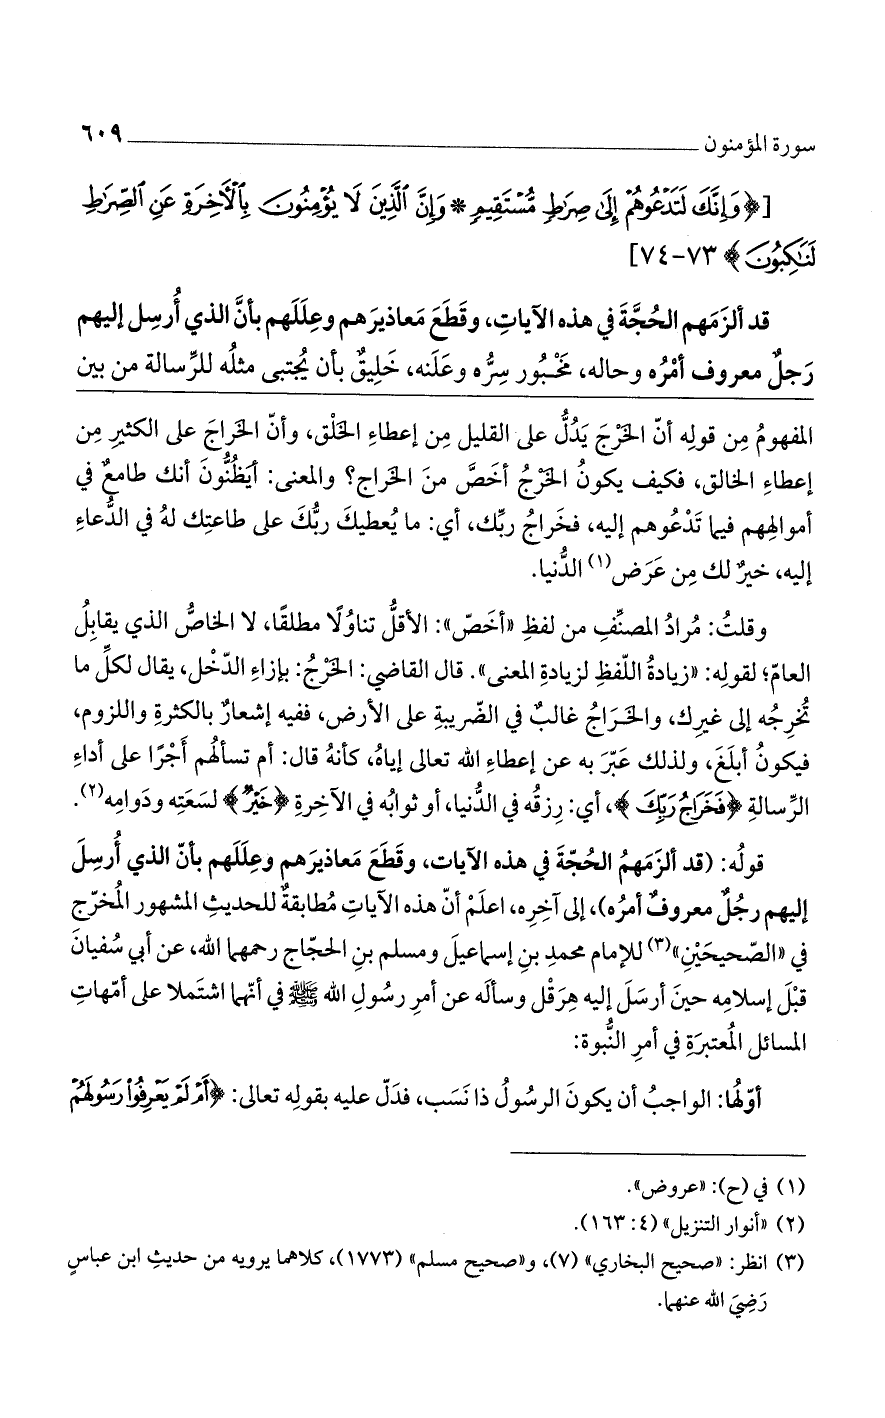 سورة المؤمنون ٦٠٩
[﴿وَإِنَّكَ لَتَدْعُوهُمْ إِلَىٰ صِرَٰطٍ مُّسْتَقِيمٍ * وَإِنَّ ٱلَّذِينَ لَا يُؤْمِنُونَ بِٱلْأَخِرَةِ عَنِ ٱلصِّرَٰطِ
لَنَٰكِبُونَ﴾ ٧٣-٧٤]
قد ألزَمَهم الحُجَّةَ في هذه الآياتِ، وقَطَعَ مَعاذيرَهم وعِلَلَهم بأنَّ الذي أُرسِل إليهم
رَجلٌ معروف أمْرُه وحاله، مَخْبُور سِرُّه وعَلَنه، خَليقٌ بأن يُجتبى مثلُه للرِّسالة من بين
المفهومُ مِن قولِه أنّ الخَرْجَ يَدُلُّ على القليل مِن إعطاءِ الخَلْق، وأنّ الخَراجَ على الكثيرِ مِن
إعطاءِ الخالق، فكيف يكونُ الخَرْجُ أخَصَّ منَ الخَراج؟ والمعنى: أيَظُنُّونَ أنك طامعٌ في
أموالِهم فيما تَدْعُوهم إليه، فخَراجُ ربِّك، أي: ما يُعطيكَ ربُّكَ على طاعتِك لهُ في الدُّعاءِ
إليه، خيرٌ لك مِن عَرَض(١) الدُّنيا.
وقلتُ: مُرادُ المصنِّفِ من لفظِ «أخَصّ»: الأقلُّ تناوُلًا مطلقًا، لا الخاصُّ الذي يقابِلُ
العامّ؛ لقولِه: «زيادةُ اللّفظِ لزيادةِ المعنى». قال القاضي: الخَرْجُ: بإزاءِ الدّخْل، يقال لكلِّ ما
تُخرِجُه إلى غيرِك، والخَراجُ غالبٌ في الضّريبةِ على الأرض، ففيه إشعارٌ بالكثرةِ واللزوم،
فيكونُ أبلَغَ، ولذلك عَبّرَ به عن إعطاءِ الله تعالى إياهُ، كأنهُ قال: أم تسألُهم أجْرًا على أداءِ
الرِّسالةِ ﴿فَخَرَاجُ رَبِّكَ﴾، أي: رِزقُه في الدُّنيا، أو ثوابُه في الآخِرةِ ﴿خَيْرٌ﴾ لسَعَتِه ودَوامِه(٢).
قولُه: (قد ألزَمَهمُ الحُجّةَ في هذه الآيات، وقَطَعَ مَعاذيرَهم وعِلَلَهم بأنّ الذي أُرسِلَ
إليهم رجُلٌ معروفٌ أمرُه)، إلى آخِرِه، اعلَمْ أنّ هذه الآياتِ مُطابقةٌ للحديثِ المشهور المُخرّج
في «الصّحيحَيْنِ»(٣) للإمام محمدِ بنِ إسماعيلَ ومسلم بنِ الحجّاج رحمهما الله، عن أبي سُفيانَ
قبْلَ إسلامِه حينَ أرسَلَ إليه هِرَقْل وسألَه عن أمرِ رسُولِ الله ﷺ في أنّهما اشتَملا على أمّهاتِ
المسائل المُعتبرَةِ في أمرِ النُّبوة:
أوّلُها: الواجبُ أن يكونَ الرسُولُ ذا نَسَب، فدَلّ عليه بقولِه تعالى: ﴿أَمْ لَمْ يَعْرِفُوا۟ رَسُولَهُمْ
(١) في (ح): «عروض».
(٢) «أنوار التنزيل» (٤: ١٦٣).
(٣) انظر: «صحيح البخاري» (٧)، و«صحيح مسلم» (١٧٧٣)، كلاهما يرويه من حديثِ ابن عباسٍ
رَضِيَ الله عنهما.